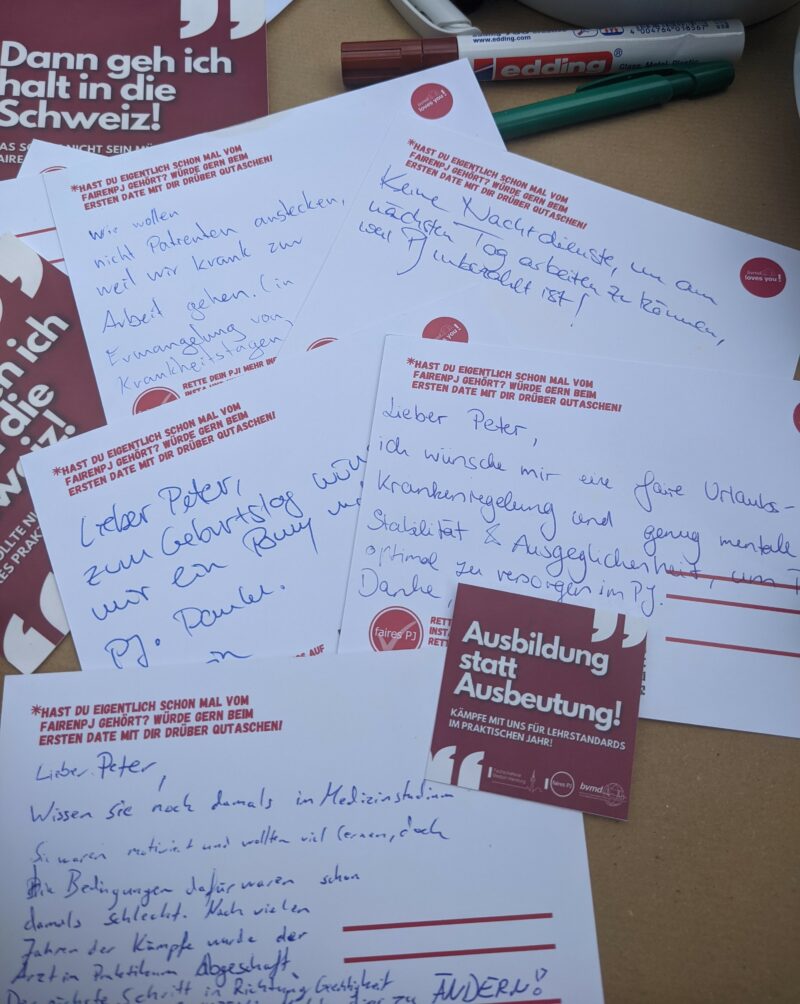 Dann geh ich
halt in die
Schweiz!
www.edding.com
4 004764 018567
edding
Glass, Metal, Plastic
bvmd
loves you!
*HAST DU EIGENTLICH SCHON MAL VOM
FAIRENPJ GEHÖRT? WÜRDE GERN BEIM
ERSTEN DATE MIT DIR DRÜBER QUTASCHEN!
Wir wollen
nicht Patienten anstecken,
weil wir krank zur
Arbeit gehen. (in
Ermangelung von
Krankheitstagen)
RETTE DEIN PJ! MEHR INF
*HAST DU EIGENTLICH SCHON MAL VOM
FAIRENPJ GEHÖRT? WÜRDE GERN BEIM
ERSTEN DATE MIT DIR DRÜBER QUTASCHEN!
Keine Nachtdienste, um am
nächsten Tag arbeiten zu können,
weil PJ unbezahlt ist!
bvmd
loves you!
ich
die
loves you!
*HAST DU EIGENTLICH SCHON MAL VOM
FAIRENPJ GEHÖRT? WÜRDE GERN BEIM
ERSTEN DATE MIT DIR DRÜBER QUTASCHEN!
Lieber Peter,
zum Geburtstag
mir ein
PJ. Danke.
*HAST DU EIGENTLICH SCHON MAL VOM
FAIRENPJ GEHÖRT? WÜRDE GERN BEIM
ERSTEN DATE MIT DIR DRÜBER QUTASCHEN!
Lieber Peter,
ich wünsche mir eine faire Urlaubs-
Krankenregelung und genug mentale
Stabilität & Ausgeglichenheit, um
optimal zu versorgen im PJ.
Danke,
faires PJ
Ausbildung
statt
Ausbeutung!
KÄMPFE MIT UNS FÜR LEHRSTANDARDS
IM PRAKTISCHEN JAHR!
faires PJ
bvmd
*HAST DU EIGENTLICH SCHON MAL VOM
FAIRENPJ GEHÖRT? WÜRDE GERN BEIM
ERSTEN DATE MIT DIR DRÜBER QUTASCHEN!
Lieber Peter,
Wissen sie noch damals im Medizinstudium
Sie waren motiviert und wollten viel lernen, doch
Die Bedingungen dafür waren schon
damals schlecht. Nach vielen
Jahren der Kämpfe wurde der
Arzt in Praktikum Abgeschaft
Der nächste Schritt in Richtung Gerechtigkeit
zu ÄNDERN!